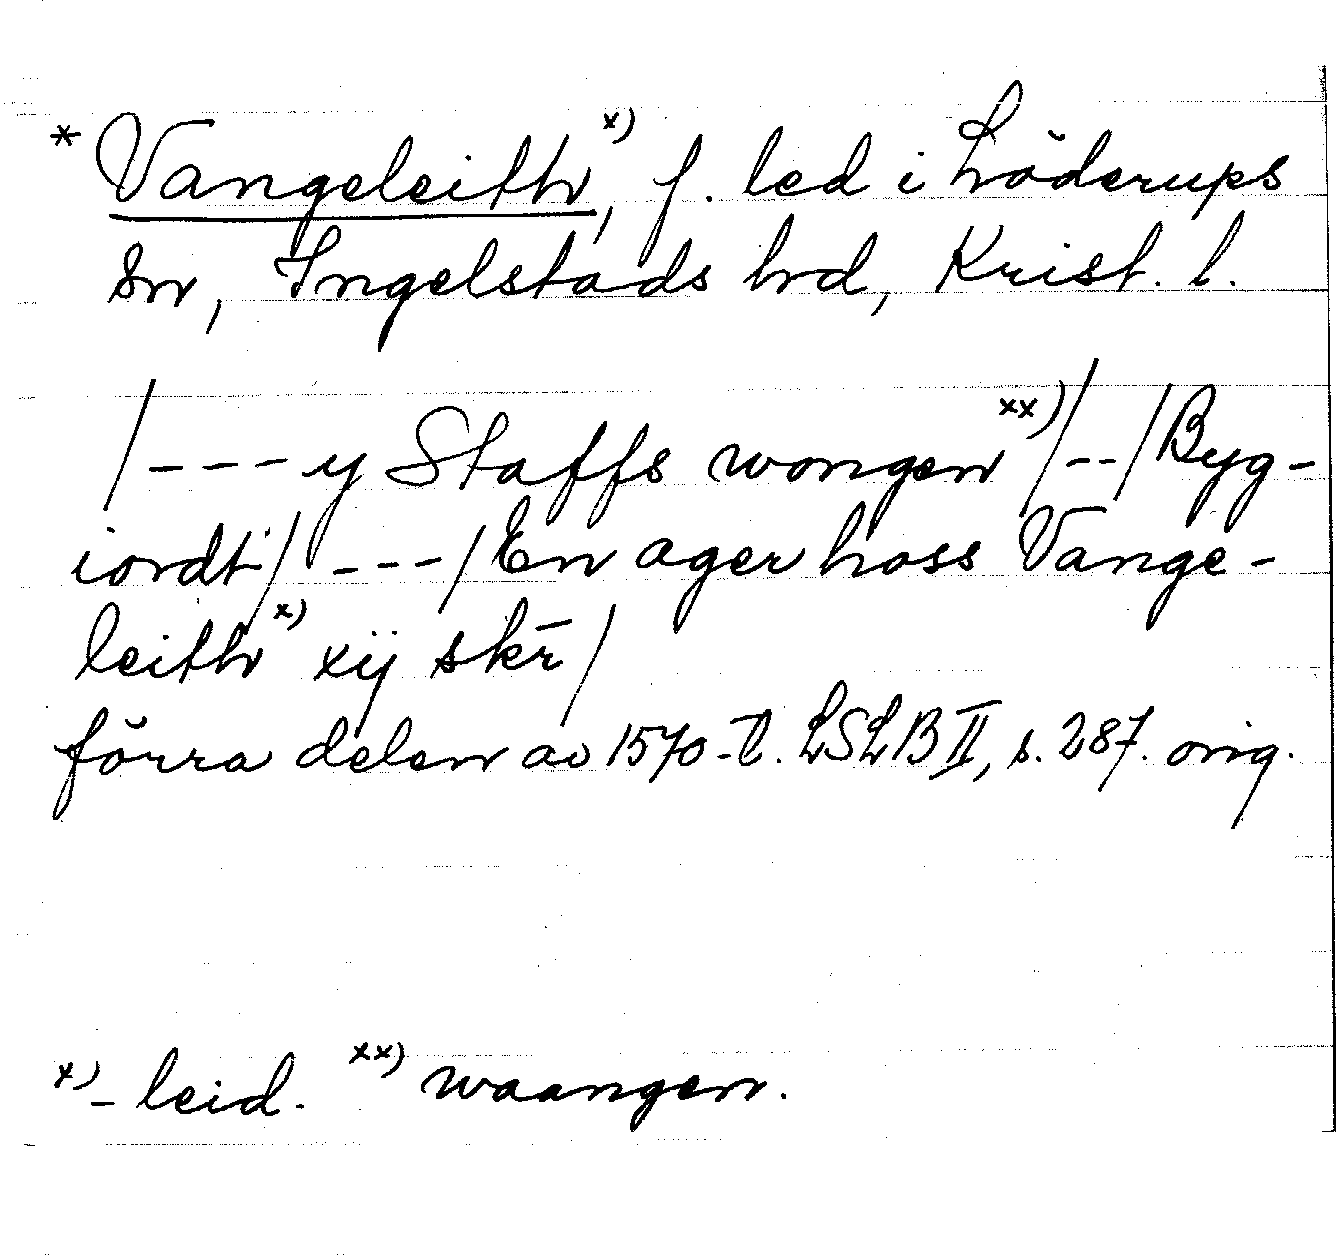 * Vangeleith x), f. led i Löderups
sn, Ingelstads hd, Krist. l.
/---y Staffs wongen xx)/--/Byg-
iordt/ ---/En ager hoss Vange-
leith x) xij skr̄/
förra delen av 1570-t. LSLB II, s. 287. orig.
x) -leid. xx) waangen.